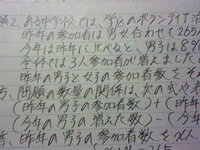 題2、ある中学校では、学区のボランティア活
昨年の参加者は男女合わせて265人
今年は昨年に比べると、男子は8%
全体では3人参加者が増えました
昨年の男子と女子の参加者数をそ
考、問題の数量の関係は、次の式や
(昨年の男子の参加者数)+(昨年
(今年の男子の増えた数)-(今年
昨年の男子の参加者数をx人